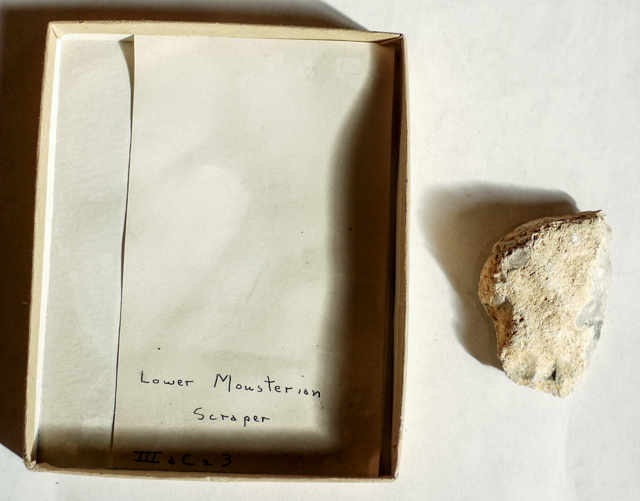 Lower Mousterian
Scraper
III a C 2 3